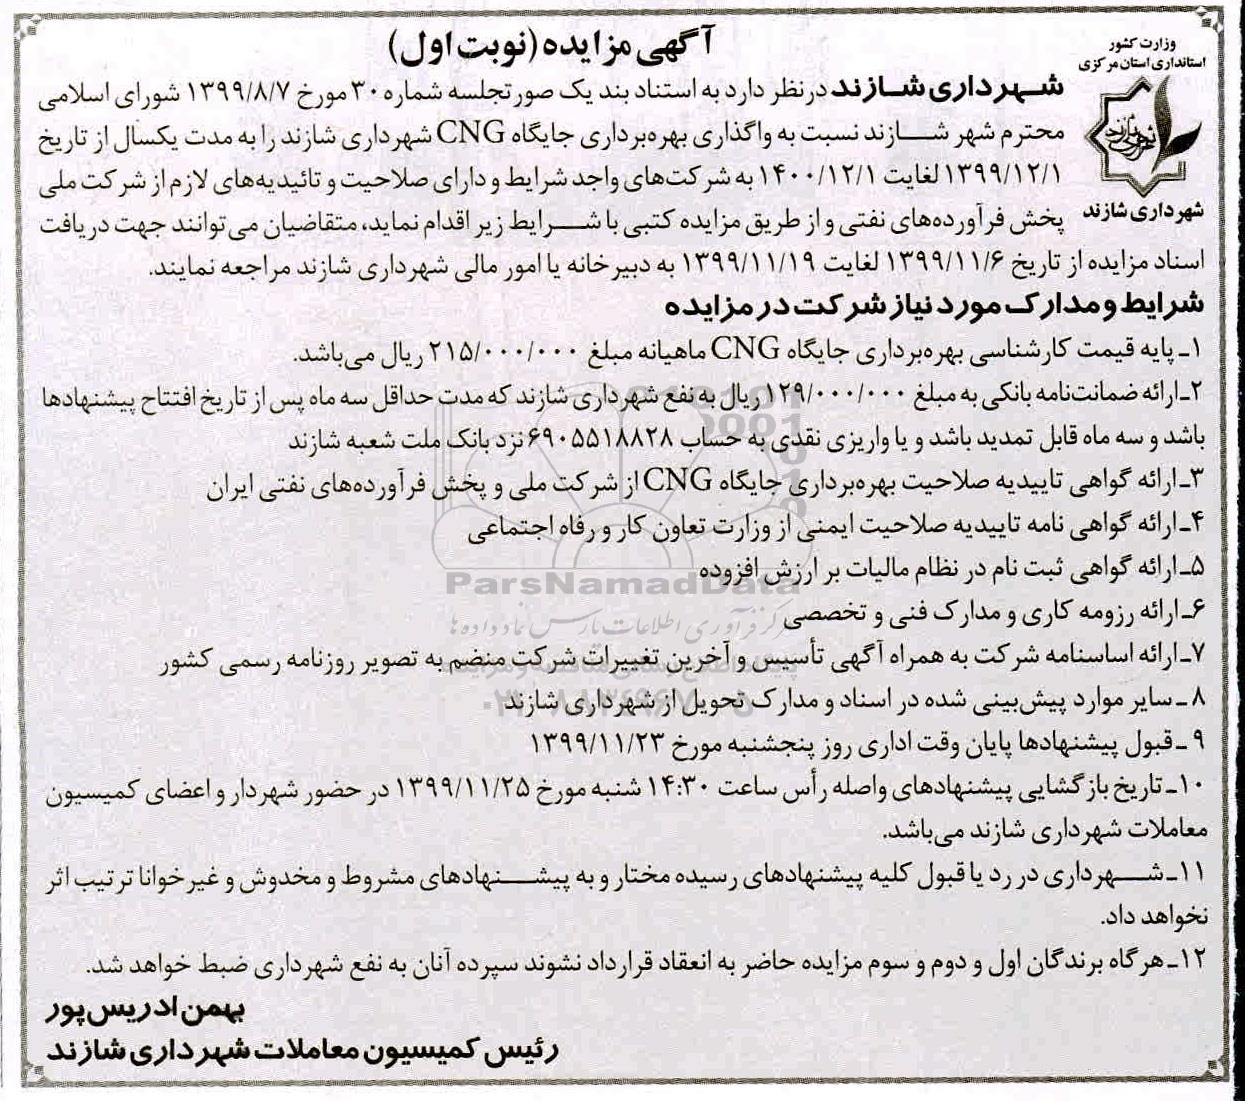 آگهی مزایده (نوبت اول)
وزارت کشور
استانداری استان مرکزی
شهرداری شازند
شهرداری شازند در نظر دارد به استناد بند یک صورتجلسه شماره ۳۰ مورخ ۱۳۹۹/۸/۷ شورای اسلامی
محترم شهر شازند نسبت به واگذاری بهره‌برداری جایگاه CNG شهرداری شازند را به مدت یکسال از تاریخ
۱۳۹۹/۱۲/۱ لغایت ۱۴۰۰/۱۲/۱ به شرکت‌های واجد شرایط و دارای صلاحیت و تائیدیه‌های لازم از شرکت ملی
پخش فرآورده‌های نفتی و از طریق مزایده کتبی با شرایط زیر اقدام نماید، متقاضیان می‌توانند جهت دریافت
اسناد مزایده از تاریخ ۱۳۹۹/۱۱/۶ لغایت ۱۳۹۹/۱۱/۱۹ به دبیرخانه یا امور مالی شهرداری شازند مراجعه نمایند.
شرایط و مدارک مورد نیاز شرکت در مزایده
۱ـ پایه قیمت کارشناسی بهره‌برداری جایگاه CNG ماهیانه مبلغ ۲۱۵/۰۰۰/۰۰۰ ریال می‌باشد.
۲ـ ارائه ضمانت‌نامه بانکی به مبلغ ۱۲۹/۰۰۰/۰۰۰ ریال به نفع شهرداری شازند که مدت حداقل سه ماه پس از تاریخ افتتاح پیشنهادها
باشد و سه ماه قابل تمدید باشد و یا واریزی نقدی به حساب ۶۹۰۵۵۱۸۸۲۸ نزد بانک ملت شعبه شازند
۳ـ ارائه گواهی تاییدیه صلاحیت بهره‌برداری جایگاه CNG از شرکت ملی و پخش فرآورده‌های نفتی ایران
۴ـ ارائه گواهی نامه تاییدیه صلاحیت ایمنی از وزارت تعاون کار و رفاه اجتماعی
۵ـ ارائه گواهی ثبت نام در نظام مالیات بر ارزش افزوده
ParsNamadData
۶ـ ارائه رزومه کاری و مدارک فنی و تخصصی
مرکز فرآوری اطلاعات پارس نماد داده‌ها
۷ـ ارائه اساسنامه شرکت به همراه آگهی تأسیس و آخرین تغییرات شرکت منضم به تصویر روزنامه رسمی کشور
۸ ـ سایر موارد پیش‌بینی شده در اسناد و مدارک تحویل از شهرداری شازند
۹ ـ قبول پیشنهادها پایان وقت اداری روز پنجشنبه مورخ ۱۳۹۹/۱۱/۲۳
۱۰ـ تاریخ بازگشایی پیشنهادهای واصله رأس ساعت ۱۴:۳۰ شنبه مورخ ۱۳۹۹/۱۱/۲۵ در حضور شهردار و اعضای کمیسیون
معاملات شهرداری شازند می‌باشد.
۱۱ـ شهرداری در رد یا قبول کلیه پیشنهادهای رسیده مختار و به پیشنهادهای مشروط و مخدوش و غیرخوانا ترتیب اثر
نخواهد داد.
۱۲ـ هرگاه برندگان اول و دوم و سوم مزایده حاضر به انعقاد قرارداد نشوند سپرده آنان به نفع شهرداری ضبط خواهد شد.
بهمن ادریس‌پور
رئیس کمیسیون معاملات شهرداری شازند